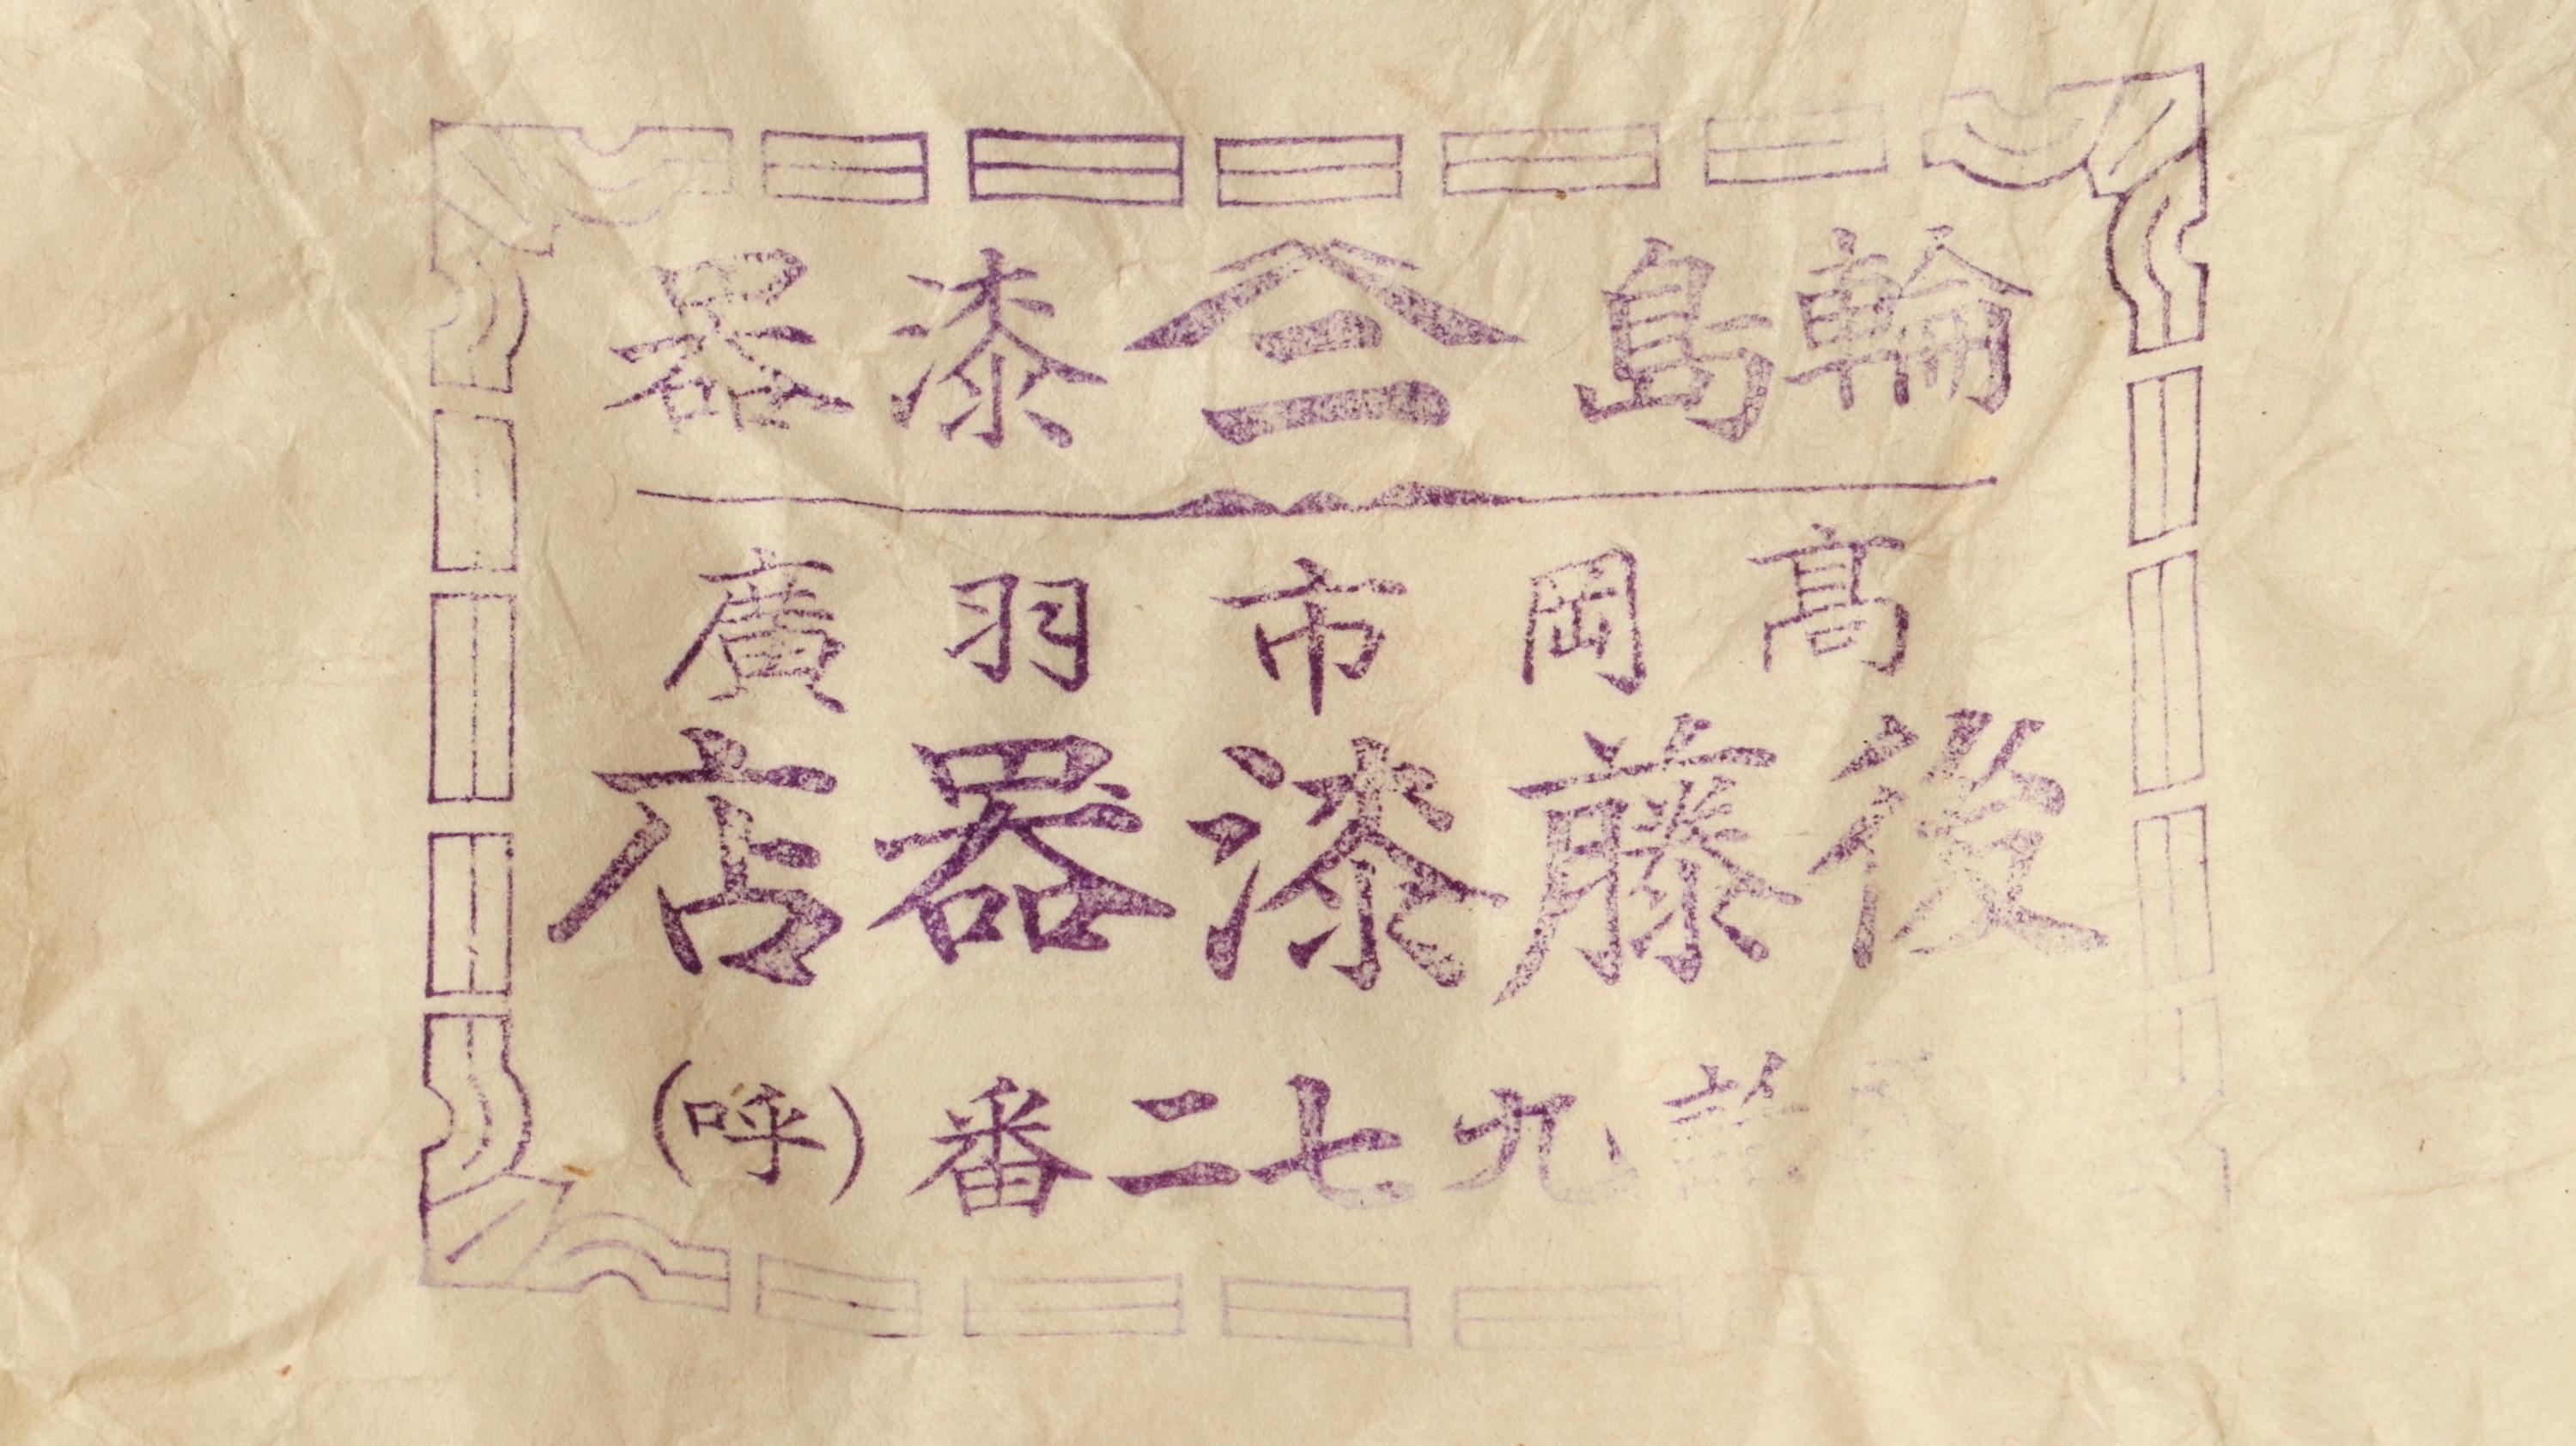 輪島 仝 漆器
髙岡市羽廣
後藤漆器店
話九七二番(呼)